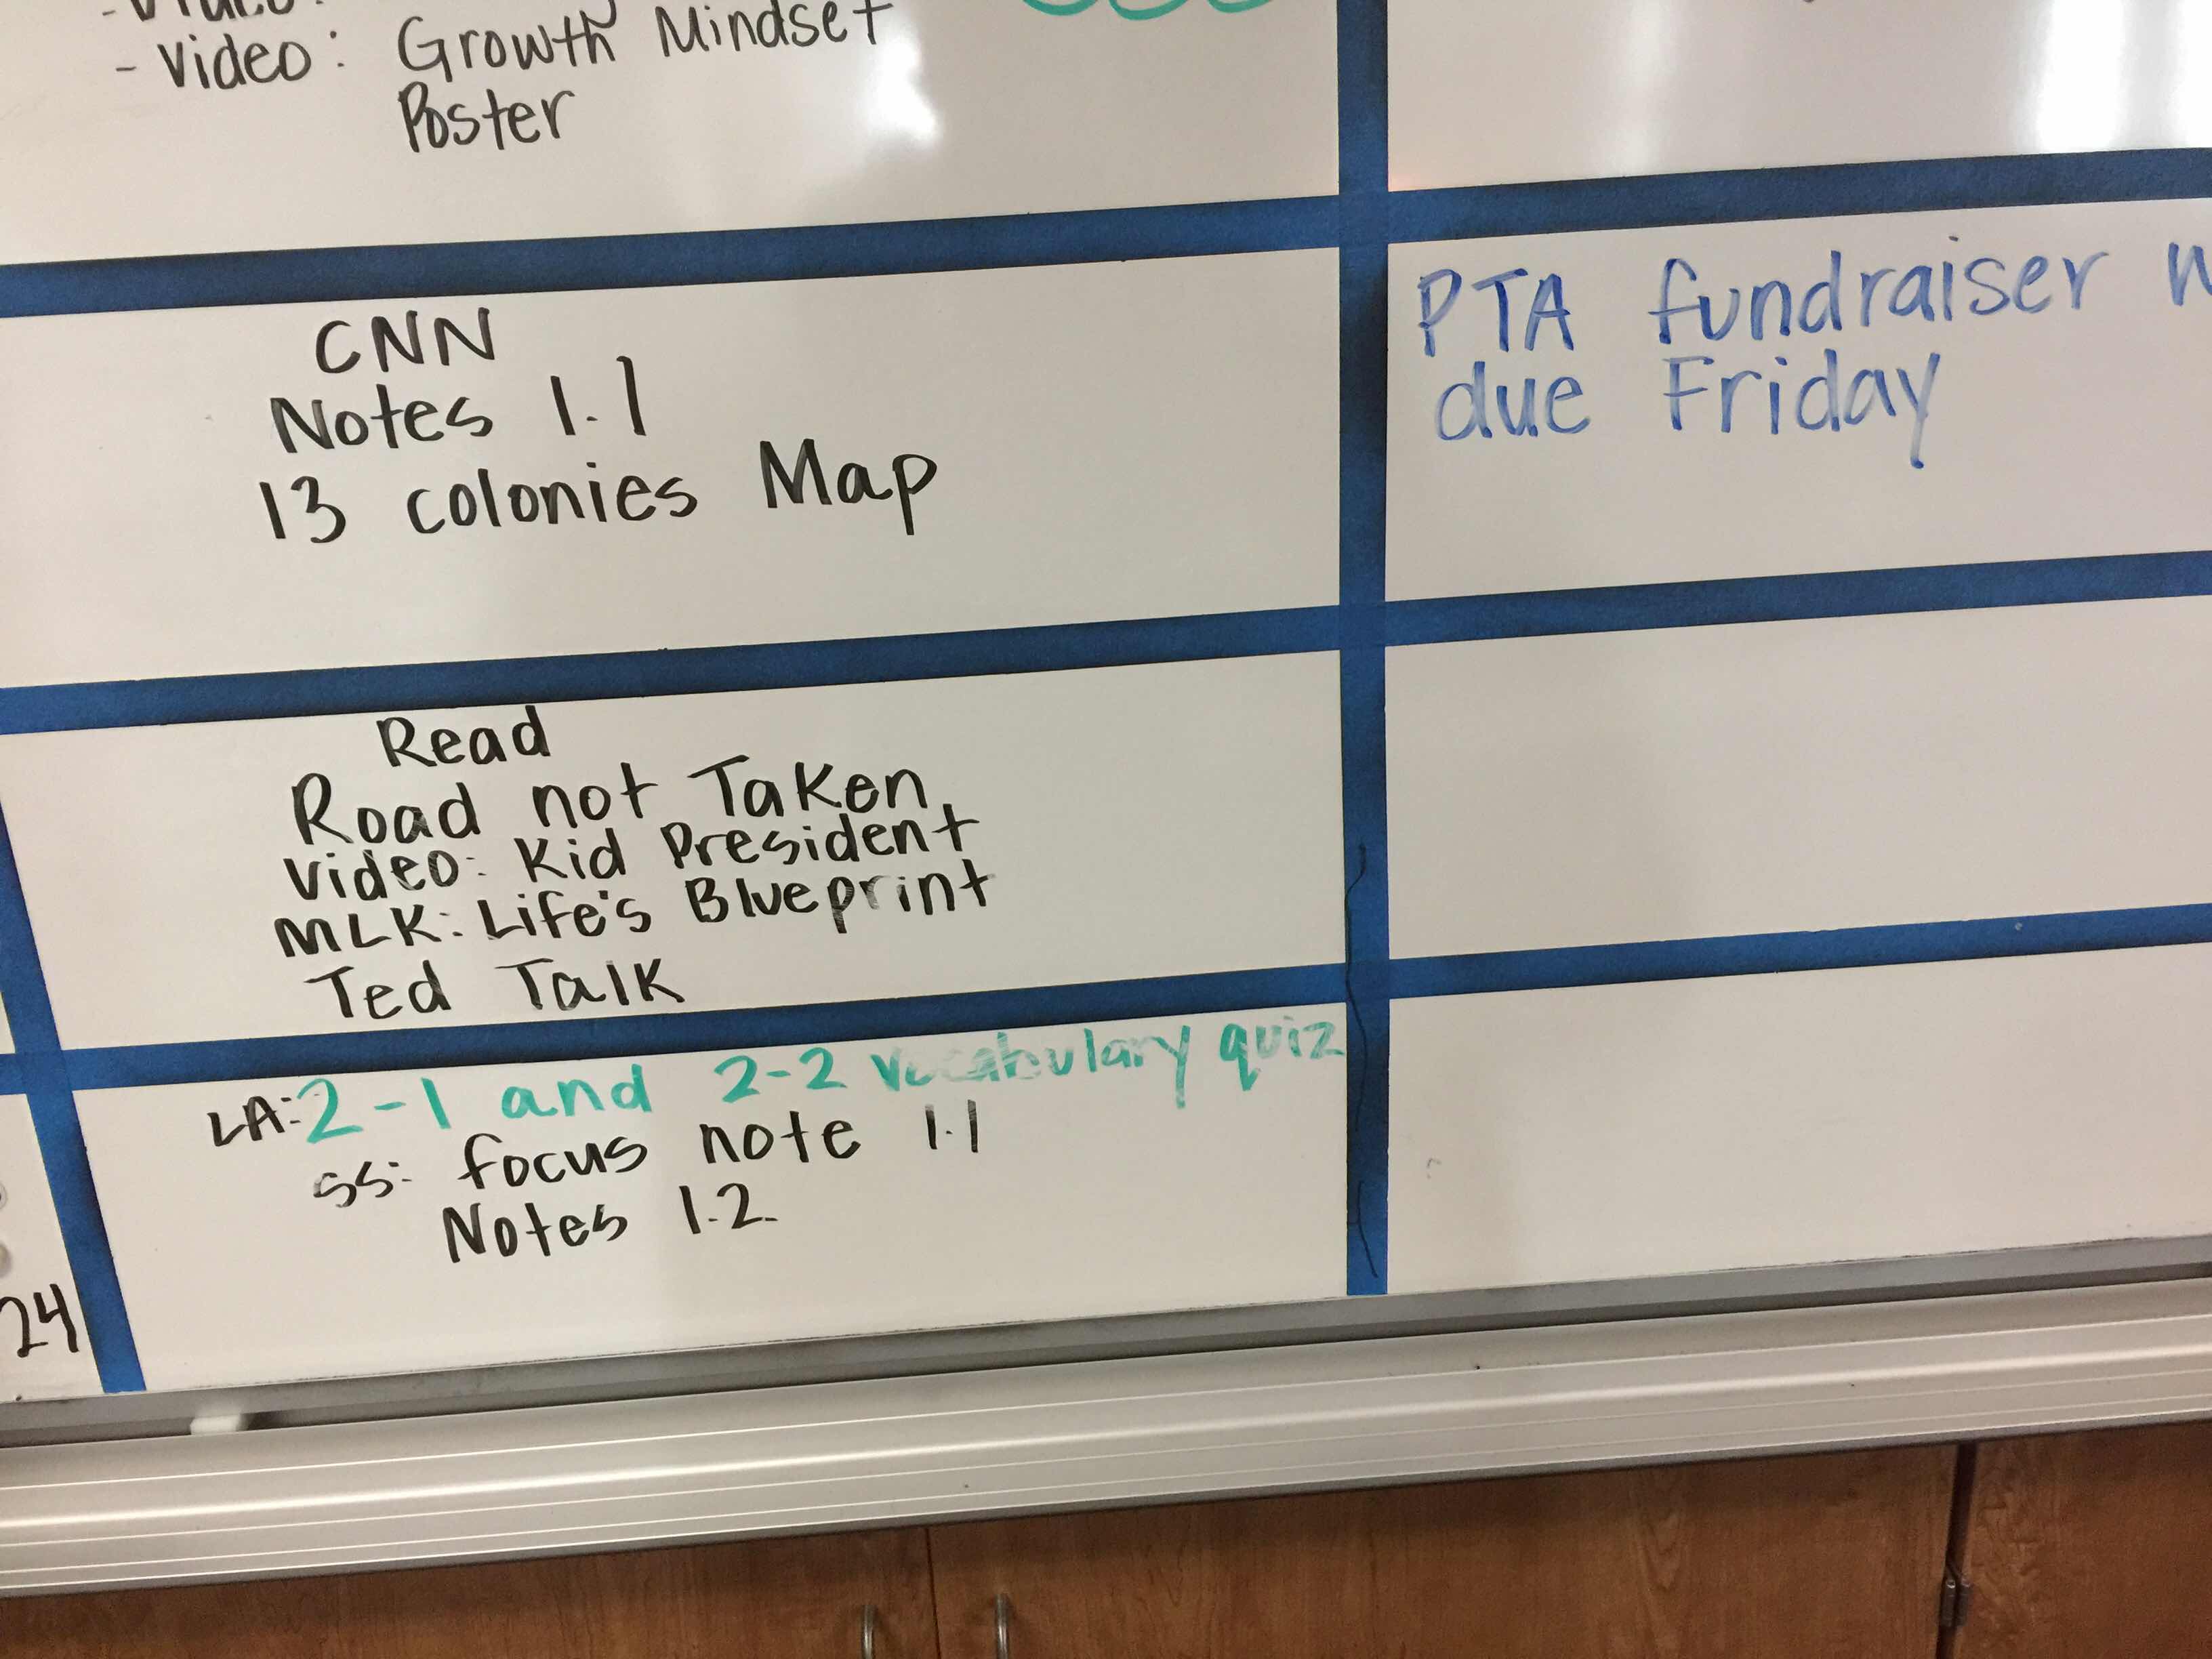 - Video: Growth Mindset
Poster
CNN
Notes 1.1
13 colonies Map
PTA fundraiser
due Friday
Read
Road not Taken,
Video: Kid President
MLK: Life's Blueprint
Ted Talk
LA: 2-1 and 2-2 vocabulary quiz
SS: focus note 1.1
Notes 1.2
24